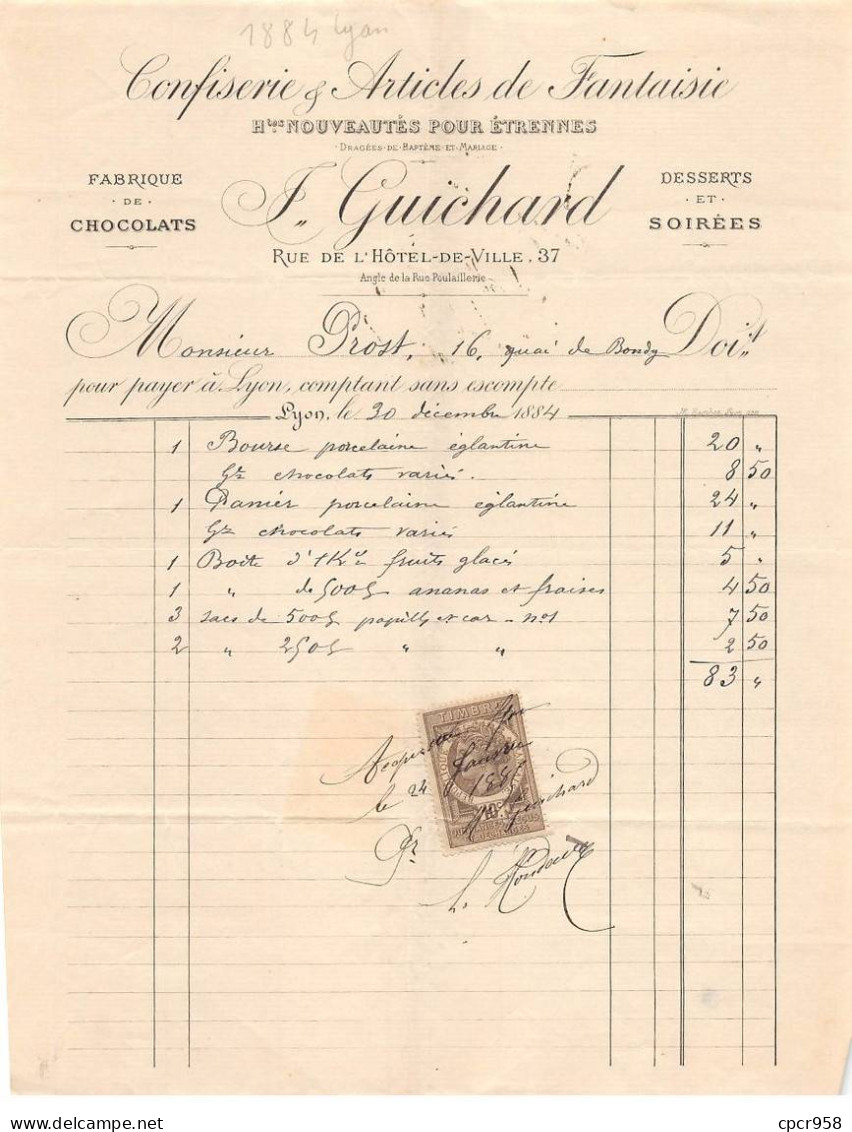 1884 Lyon
Confiserie & Articles de Fantaisie
Htes NOUVEAUTÉS POUR ÉTRENNES
· DRAGÉES · DE · BAPTÊME · ET · MARIAGE ·
FABRIQUE
· DE ·
CHOCOLATS
J. Guichard
DESSERTS
· ET ·
SOIRÉES
RUE DE L'HÔTEL-DE-VILLE, 37
Angle de la Rue Poulaillerie
Monsieur Prost, 16, quai de Bondy Doit
pour payer à Lyon, comptant sans escompte
Lyon, le 30 décembre 1884
1 Bourse porcelaine églantine 20 "
Gz chocolats variés. 8 50
1 Panier porcelaine églantine 24 "
Gz chocolats variés 11 "
1 Boîte d'1K fruits glacés 5 "
1 " de 500g ananas et fraises 4 50
3 sacs de 500g papill et car - no1 7 50
2 " 250g " " 2 50
83 "
TIMBRE
Lyon
le 24 Janvier
10c
Guichard
Pr
cpcr958